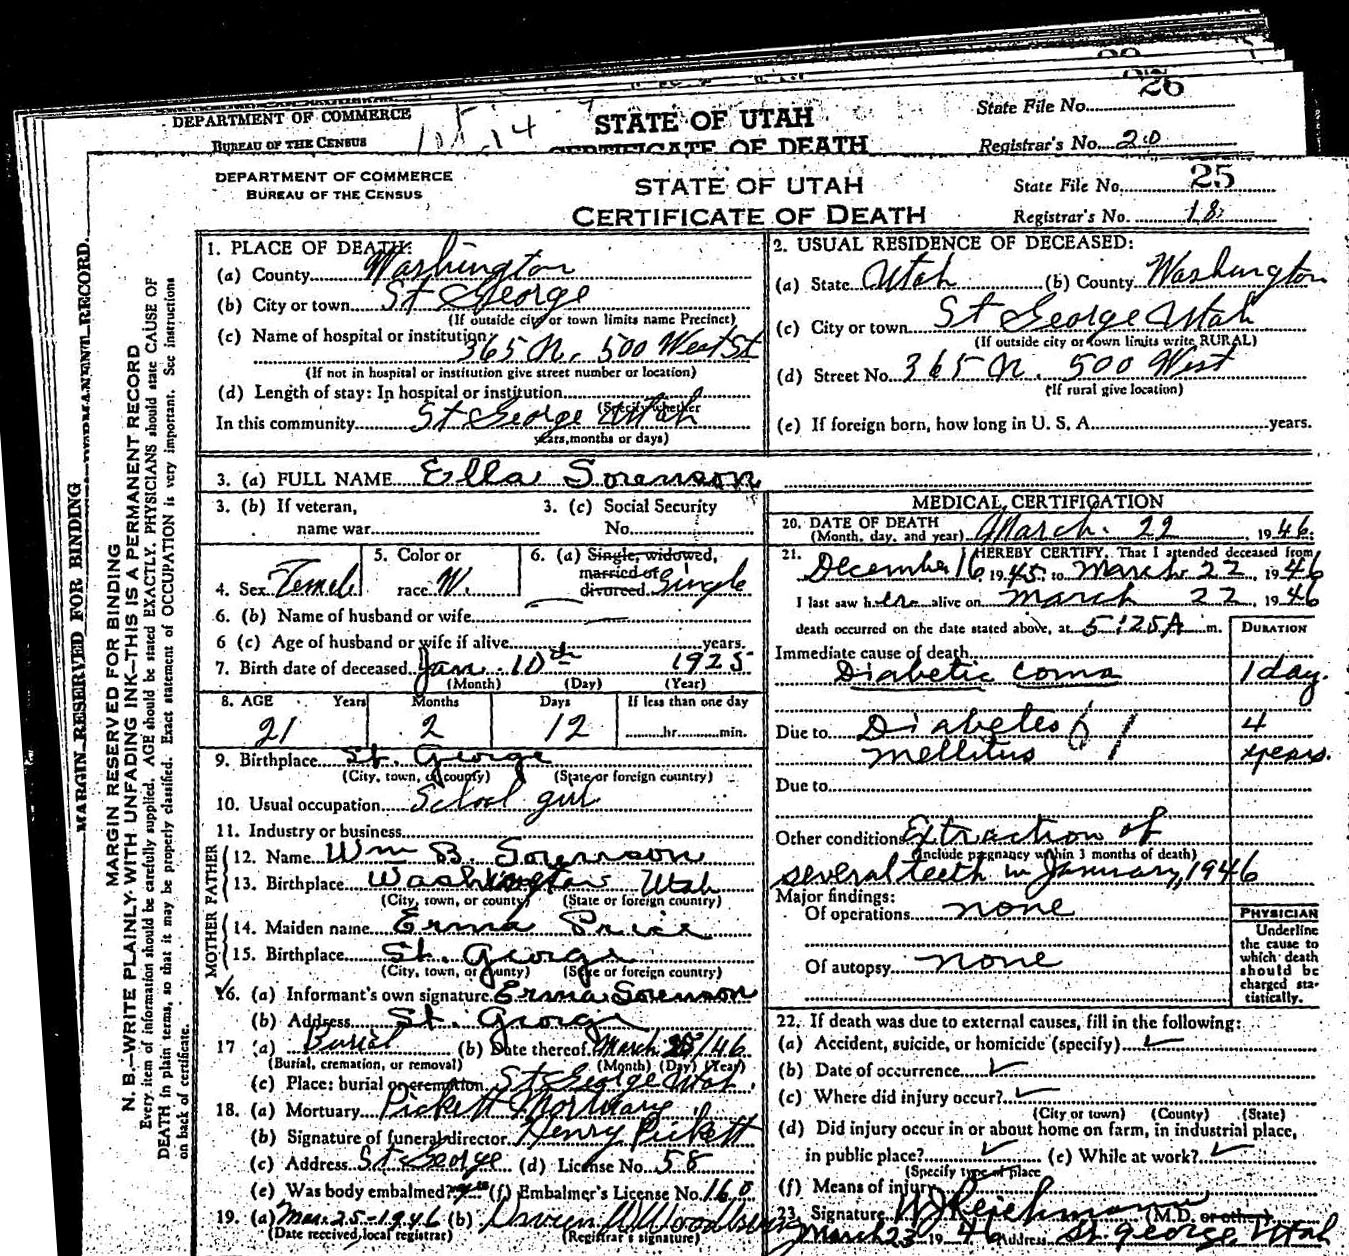 26
DEPARTMENT OF COMMERCE
BUREAU OF THE CENSUS
STATE OF UTAH
CERTIFICATE OF DEATH
State File No.
Registrar's No. 20
DEPARTMENT OF COMMERCE
BUREAU OF THE CENSUS
STATE OF UTAH
CERTIFICATE OF DEATH
State File No. 25
Registrar's No. 18
MARGIN RESERVED FOR BINDING
MARGIN RESERVED FOR BINDING
N. B.—WRITE PLAINLY WITH UNFADING INK—THIS IS A PERMANENT RECORD
Every item of information should be carefully supplied. AGE should be stated EXACTLY. PHYSICIANS should state CAUSE OF
DEATH in plain terms, so that it may be properly classified. Exact statement of OCCUPATION is very important. See instructions
on back of certificate.
1. PLACE OF DEATH:
(a) County Washington
(b) City or town St George
(If outside city or town limits name Precinct)
(c) Name of hospital or institution
365 N. 500 West St
(If not in hospital or institution give street number or location)
(d) Length of stay: In hospital or institution
(Specify whether
In this community St George Utah
years, months or days)
2. USUAL RESIDENCE OF DECEASED:
(a) State Utah (b) County Washington
(c) City or town St George Utah
(If outside city or town limits write RURAL)
(d) Street No. 365 N. 500 West
(If rural give location)
(e) If foreign born, how long in U. S. A. years.
3. (a) FULL NAME Ella Sorenson
3. (b) If veteran,
name war
3. (c) Social Security
No.
4. Sex Female
5. Color or
race W.
6. (a) Single, widowed,
married or
divorced Single
6. (b) Name of husband or wife
6 (c) Age of husband or wife if alive years.
7. Birth date of deceased Jan. 10th 1925
(Month) (Day) (Year)
8. AGE Years Months Days If less than one day
21 2 12 hr. min.
9. Birthplace St. George
(City, town, or county) (State or foreign country)
10. Usual occupation School girl
11. Industry or business
FATHER
12. Name Wm B. Sorenson
13. Birthplace Washington Utah
(City, town, or county) (State or foreign country)
MOTHER
14. Maiden name Erma Price
15. Birthplace St. George
(City, town, or county) (State or foreign country)
16. (a) Informant's own signature Erma Sorenson
(b) Address St. George
17 (a) Burial (b) Date thereof March 25/46
(Burial, cremation, or removal) (Month) (Day) (Year)
(c) Place: burial or cremation St George Utah.
18. (a) Mortuary Pickett Mortuary
(b) Signature of funeral director Henry Pickett
(c) Address St George (d) License No. 58
(e) Was body embalmed? yes (f) Embalmer's License No. 160
19. (a) Mar. 25-1946 (b)
(Date received local registrar) (Registrar's signature)
MEDICAL CERTIFICATION
20. DATE OF DEATH
(Month, day, and year) March 22, 1946
21. I HEREBY CERTIFY, That I attended deceased from
December 16 1945 to March 22, 1946
I last saw her alive on March 22, 1946
death occurred on the date stated above, at 5:25A m.
DURATION
Immediate cause of death
Diabetic coma 1 day.
Due to Diabetes 61 4
mellitus years.
Due to
Other conditions Extraction of
(Include pregnancy within 3 months of death)
several teeth in January, 1946
Major findings:
Of operations none
Of autopsy none
PHYSICIAN
Underline
the cause to
which death
should be
charged sta-
tistically.
22. If death was due to external causes, fill in the following:
(a) Accident, suicide, or homicide (specify)
(b) Date of occurrence
(c) Where did injury occur?
(City or town) (County) (State)
(d) Did injury occur in or about home on farm, in industrial place,
in public place? (e) While at work?
(Specify type of place
(f) Means of injury
23. Signature W J Reichmann (M.D. or other)
March 23 1946 Address St George Utah